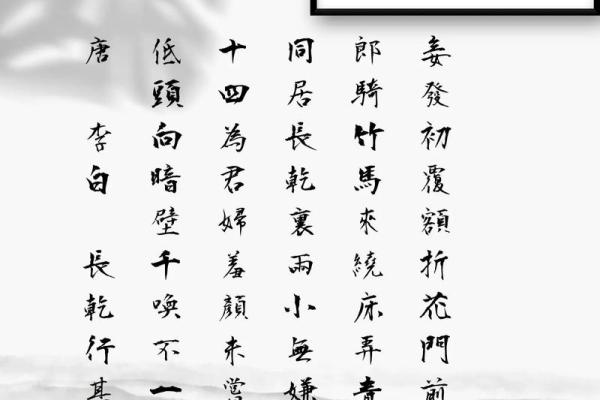 妾發初覆額折花門前
郎騎竹馬來繞床弄青
同居長乾裏兩小無嫌
十四為君婦羞顏未嘗
低頭向暗壁千喚不一
唐 李白 長乾行其